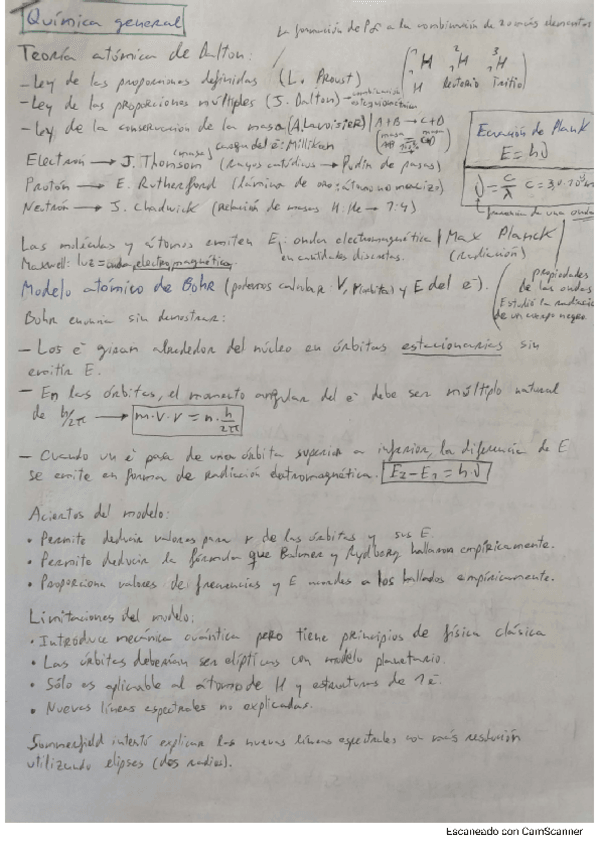 Química general
La formación de P.S a la combinación de 2 o más elementos
Teoría atómica de Dalton:
- Ley de las proporciones definidas (L. Proust)
- Ley de las proporciones múltiples (J. Dalton) → combinación estequiométrica
- Ley de la conservación de la masa (A. Lavoisier) | A + B → C + D
(masa AB = masa CD)
¹₁H ²₁H ³₁H
H Deuterio Tritio
Electrón → J. Thomson (masa) carga del e⁻: Millikan
(Rayos catódicos → Pudin de pasas)
Protón → E. Rutherford (lámina de oro: átomo no macizo)
Neutrón → J. Chadwick (Relación de masas H:He → 1:4)
Ecuación de Plank
E = hν
ν = c/λ c = 3,0·10⁸ m
frecuencia de una onda
Las moléculas y átomos emiten E, : ondas electromagnética | Max Planck
en cantidades discretas. (radiación)
Maxwell: luz = onda electromagnética.
propiedades de las ondas
Estudió la radiación de un cuerpo negro.
Modelo atómico de Bohr (podemos calcular V, r(orbitas) y E del e⁻).
Bohr enuncia sin demostrar:
- Los e⁻ giran alrededor del núcleo en órbitas estacionarias sin
emitir E.
- En las órbitas, el momento angular del e⁻ debe ser múltiplo natural
de h/2π → m·v·r = n·h/2π
- Cuando un e⁻ pasa de una órbita superior a inferior, la diferencia de E
se emite en forma de radiación electromagnética. E₂ - E₁ = h·ν
Aciertos del modelo:
• Permite deducir valores para r de las órbitas y sus E.
• Permite deducir la fórmula que Balmer y Rydberg hallaron empíricamente.
• Proporciona valores de frecuencias y E acordes a los hallados empíricamente.
Limitaciones del modelo:
• Introduce mecánica cuántica pero tiene principios de física clásica
• Las órbitas deberían ser elípticas con modelo planetario.
• Sólo es aplicable al átomo de H y estructuras de 1 e⁻.
• Nuevas líneas espectrales no explicadas.
Sommerfield intentó explicar las nuevas líneas espectrales con más resolución
utilizando elipses (dos radios).
Escaneado con CamScanner